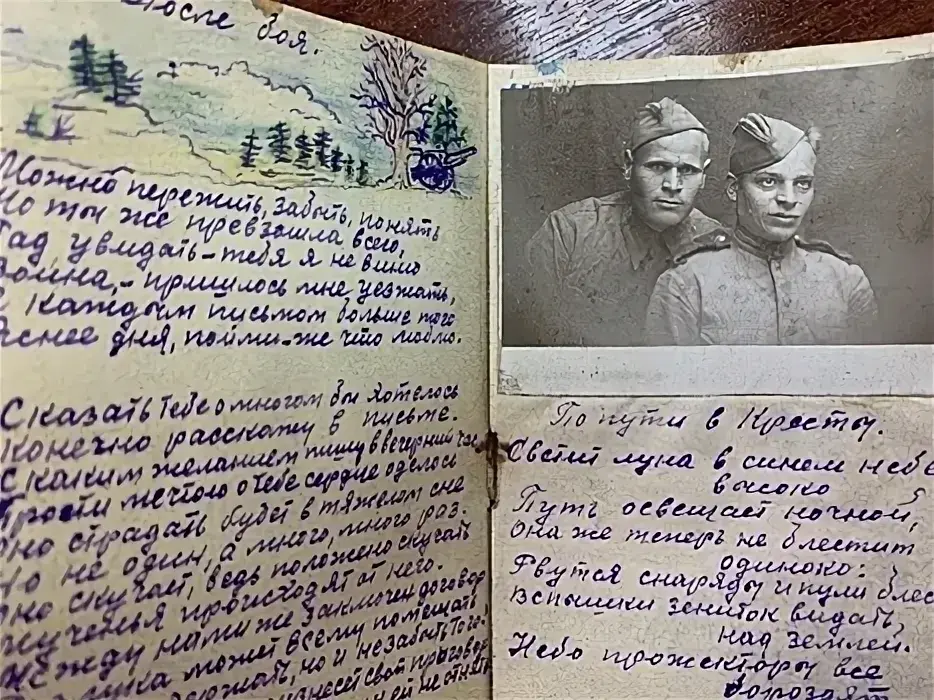 После боя.
Можно пережить, забыть, понять
Но ты же превзошла всего,
Год увидать – тебя я не вижю
Война, – пришлось мне уезжать,
С каждым письмом больше того
Яснее дня, пойми-же что люблю.
Сказать тебе о многом бы хотелось
Конечно расскажу в письме.
С каким желанием пишу в вечерний час
Прости мечтою о тебе сердце оделось
Оно страдать будет в тяжелом сне
Но не один, а много, много раз.
Оно скучает, ведь положено скучать
Мученья происходят от него.
Между нами же заключен договор
может всему помешать,
но и не забыть того.
свой приговор
ей не отнять
По пути в Кресты.
Светит луна в синем небе
высоко
Путь освещает ночной,
Она же теперь не блестит
одиноко:
Рвутся снаряды и пули блес
Вспышки зениток видать,
над землей.
Небо прожекторы все
бороздят